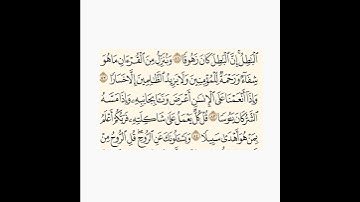 ٱلۡبَٰطِلُۚ إِنَّ ٱلۡبَٰطِلَ كَانَ زَهُوقٗا ٨١ وَنُنَزِّلُ مِنَ ٱلۡقُرۡءَانِ مَا هُوَ
شِفَآءٞ وَرَحۡمَةٞ لِّلۡمُؤۡمِنِينَ وَلَا يَزِيدُ ٱلظَّٰلِمِينَ إِلَّا خَسَارٗا ٨٢
وَإِذَآ أَنۡعَمۡنَا عَلَى ٱلۡإِنسَٰنِ أَعۡرَضَ وَنَـَٔا بِجَانِبِهِۦ وَإِذَا مَسَّهُ
ٱلشَّرُّ كَانَ يَـُٔوسٗا ٨٣ قُلۡ كُلّٞ يَعۡمَلُ عَلَىٰ شَاكِلَتِهِۦ فَرَبُّكُمۡ أَعۡلَمُ
بِمَنۡ هُوَ أَهۡدَىٰ سَبِيلٗا ٨٤ وَيَسۡـَٔلُونَكَ عَنِ ٱلرُّوحِۖ قُلِ ٱلرُّوحُ مِنۡ